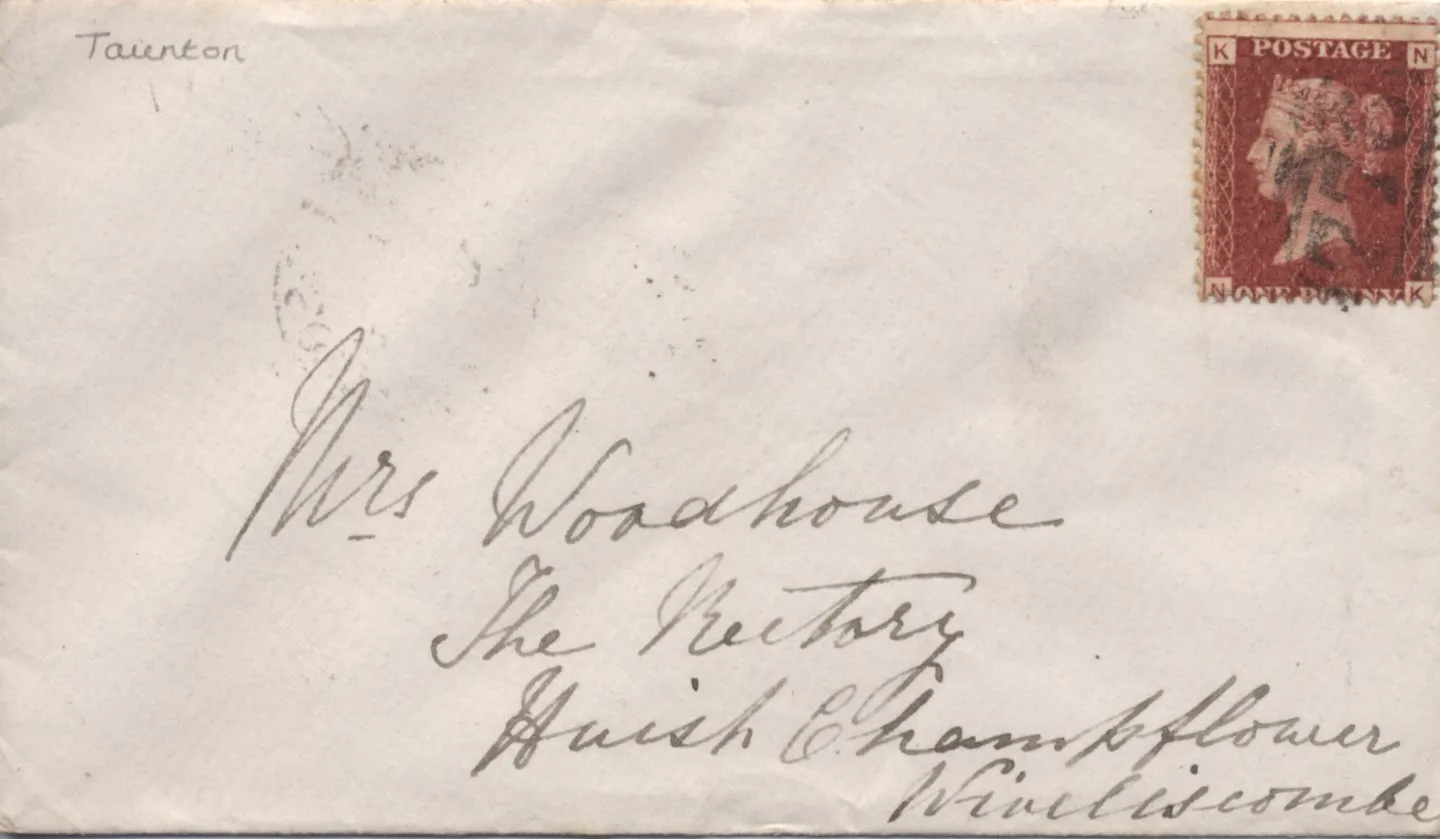 Taunton
K POSTAGE N
N ONE PENNY K
Mrs Woodhouse
The Rectory
Huish Champflower
Wiveliscombe